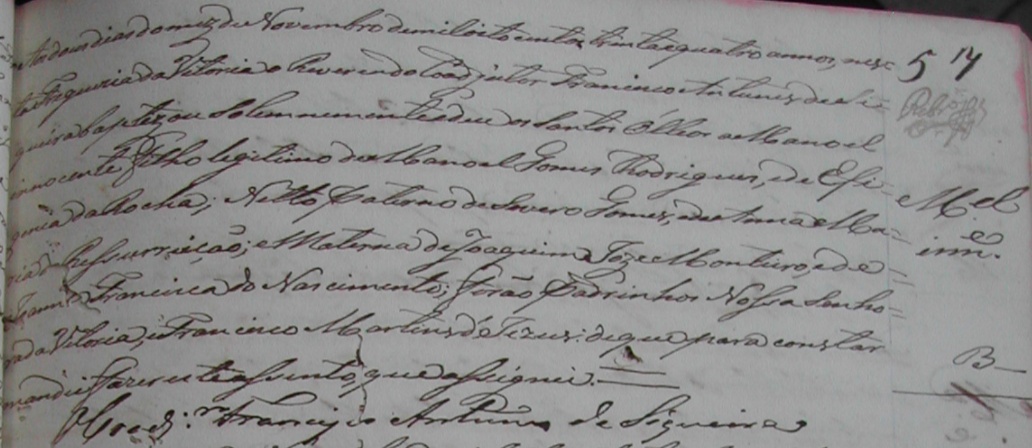 dous dias do mez de Novembro de mil oito centos trinta e quatro annos, nes=
ta Freguezia da Vitoria o Reverendo Coadjutor Francisco Antunes de Si=
queira baptizou Solemnemente e deu os Santos Oleos a Manoel
innocente Filho legitimo de Manoel Gomes Rodrigues, e de Efi=
genia da Rocha; Netto Paterno de Severo Gomes, e de Anna Ma=
ria Ressurreição; e Materna de Joaquim Joze Monteiro, e de
Francisca do Nascimento; forão Padrinhos Nossa Senho=
ra da Vitoria, e Francisco Martins de Jezus: de que para constar
mandei fazer este assento, que assignei.
Coad.or Francisco Antunes de Siqueira
57
M.el
inn.e
B